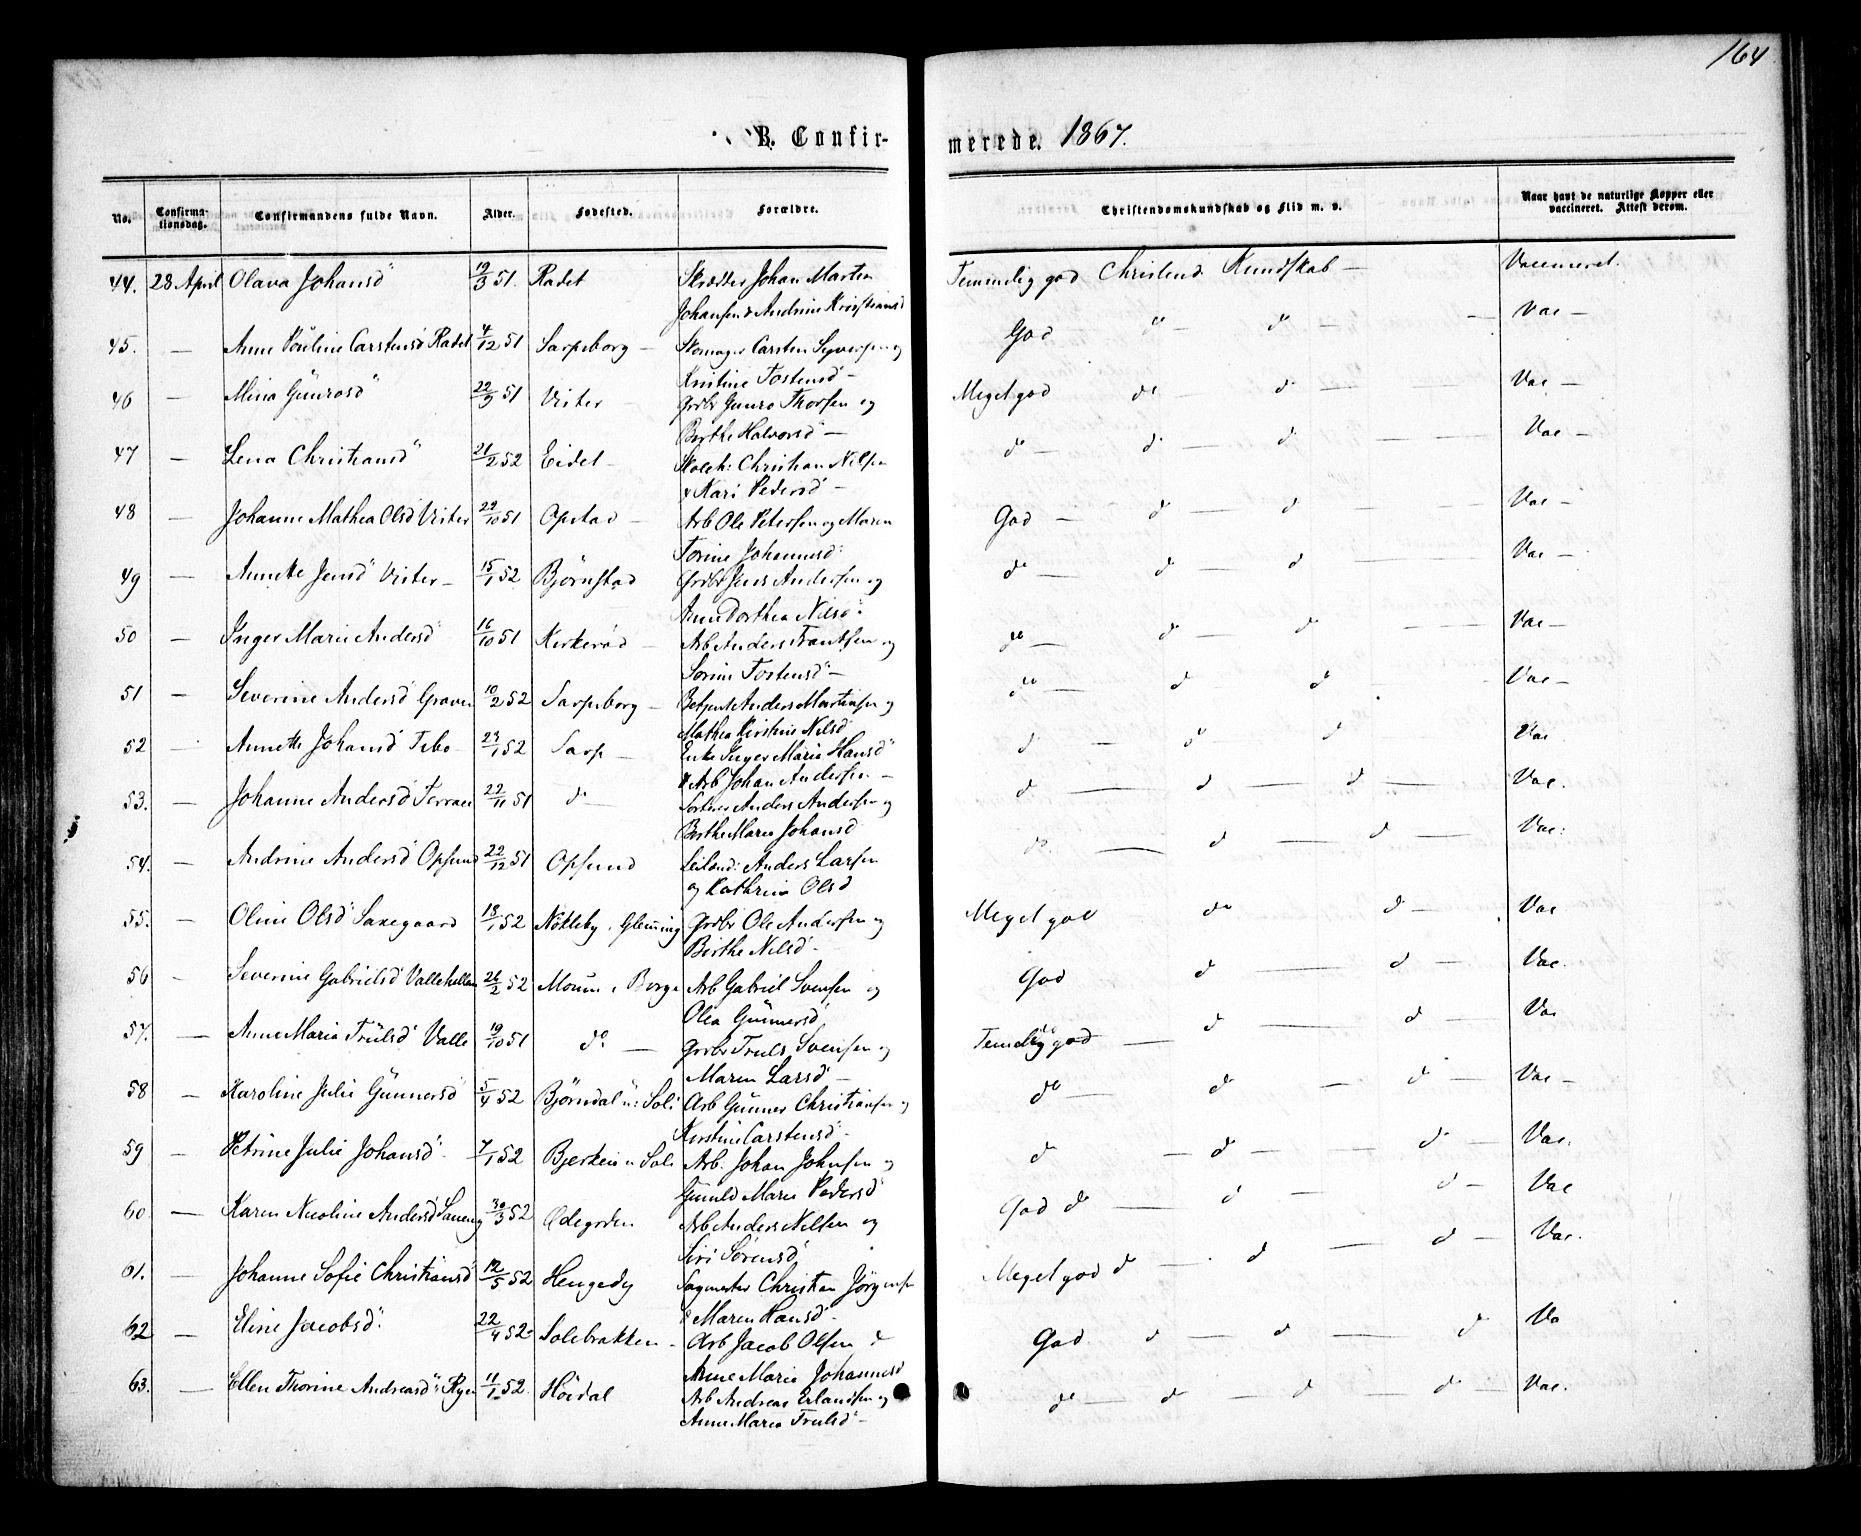 164
B. Confirmerede. 1867.
No. Confirmationsdag. Confirmandens fulde Navn. Alder. Fødested. Forældre. Christendomskundskab og Flid m. v. Naar havt de naturlige Kopper eller vaccineret. Attest derom.
44. 28 April Olava Johansd 19/3 51. Radet Skrædder Johan Martin Temmelig god Christend. Kundskab — Vaccineret.
Johansen & Andrine Kristiansd
45. — Anne Pauline Carstensd Radet 4/12 51 Sarpsborg — Skomager Carsten Syversen og God do — do — Vac —
Kristine Tostensd —
46 — Mina Gunrosd 22/9 51 Vister Grdbr Gunro Thorsen og Meget god do d — Vac —
Berthe Halvorsd —
47 — Lena Christiansd 21/2 52 Eidet — Skoleh: Christian Nilsen do — d — d — Vac —
& Kari Pedersd —
48 — Johanne Mathea Olsd Vister 29/10 51 Opstad — Arb Ole Petersen og Maren God — d — d — Vac —
Torine Johannesd:
49 — Annette Jensd Vister — 15/1 52 Bjørnstad Grdbr Jens Andersen og do — d — d — Vac —
Anne Dorthea Nilsd:
50 — Inger Marie Andersd 16/10 51 Kirkerød — Arb Anders Frantsen og do — d — d — Vac —
Sorine Tostensd —
51 — Severine Andersd Graven 10/2 52 Sarpsborg — Betjent Anders Martinsen og do — d d Vac —
Mathea Kirstine Nilsd
52 — Annette Johansd Tebo — 23/1 52 Sarp — Enke Inger Marie Hansd d — do d Vac
& Arb Johan Andersen —
53. — Johanne Andersd 22/11 51 do — Sorterer Anders Andersen og d — d — d — Vac.
Berthe Marie Johansd
54. — Andrine Andersd Opsund 22/12 51 Opsund Leilend: Anders Larsen do. — d — d — Vac:
og Kathrine Olsd
55. — Oline Olsd Saxegaard 18/1 52 Nøkleby i Glemming Grdbr Ole Andersen og Meget god do d — Vac
Birthe Nilsd —
56 — Severine Gabrielsd Vallehellen 26/2 52 Moum i Borge Arb Gabriel Svensen og God d — d — Vac.
Olea Gunnersd
57. — Anne Maria Trulsd Valle 19/10 51 do — Grdbr Truls Svensen og Temelig god — d — d — Vac
Maren Larsd —
58 — Karoline Julie Gunnersd 5/4 52 Bjørndal u: Soli Arb Gunner Christiansen og do — d — d — Vac —
Kirstine Carstensd —
59 — Petrine Julie Johansd 7/1 52 Bjerkeie u Soli Arb. Johan Johnsen og d — d — d — Vac.
Gunild Marie Pedersd
60 — Karen Nicoline Andersd 30/3 52 Ødegorden Arb Anders Nilsen og God do — d — d — Vac
Siri Sørensd
61. — Johanne Sofie Christiansd 12/5 52 Hengedy Sagmester Christian Jørgensen Meget god d — d — d — Vac.
& Maren Hansd —
62 — Eline Jacobsd: 22/4 52 — Solebrakken — Arb Jacob Olsen & God d — d — d Va
Anne Marie Johannesd
63. — Ellen Thorine Andreasd: 11/1 52. Høidal Arb Andreas Erlandsen og do — d — d — d — Vac.
Anne Maria Trulsd —